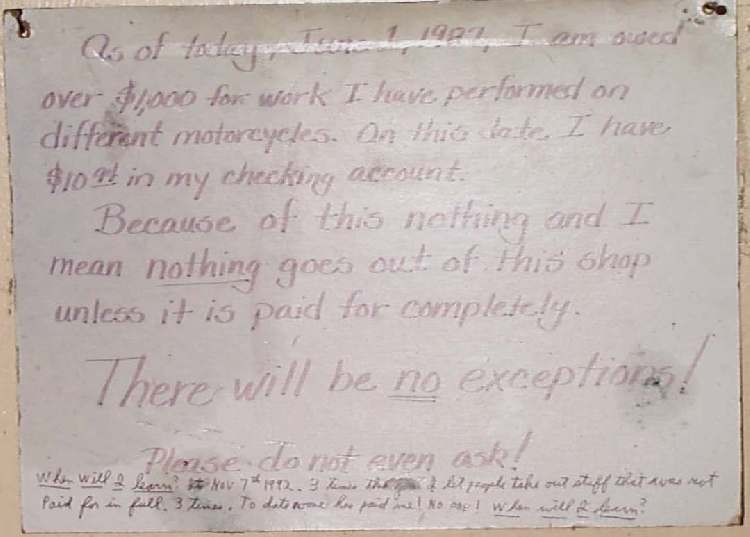 As of today, June 1, 1987, I am owed
over $1,000 for work I have performed on
different motorcycles. On this date I have
in my checking account.
Because of this nothing and I
mean nothing goes out of this shop
unless it is paid for completely.
There will be no exceptions!
Please do not even ask!
When will I learn? Nov 7th 1992. 3 times I let people take out stuff that was not
Paid for in full. 3 times. To date none has paid me! No one! When will I learn?